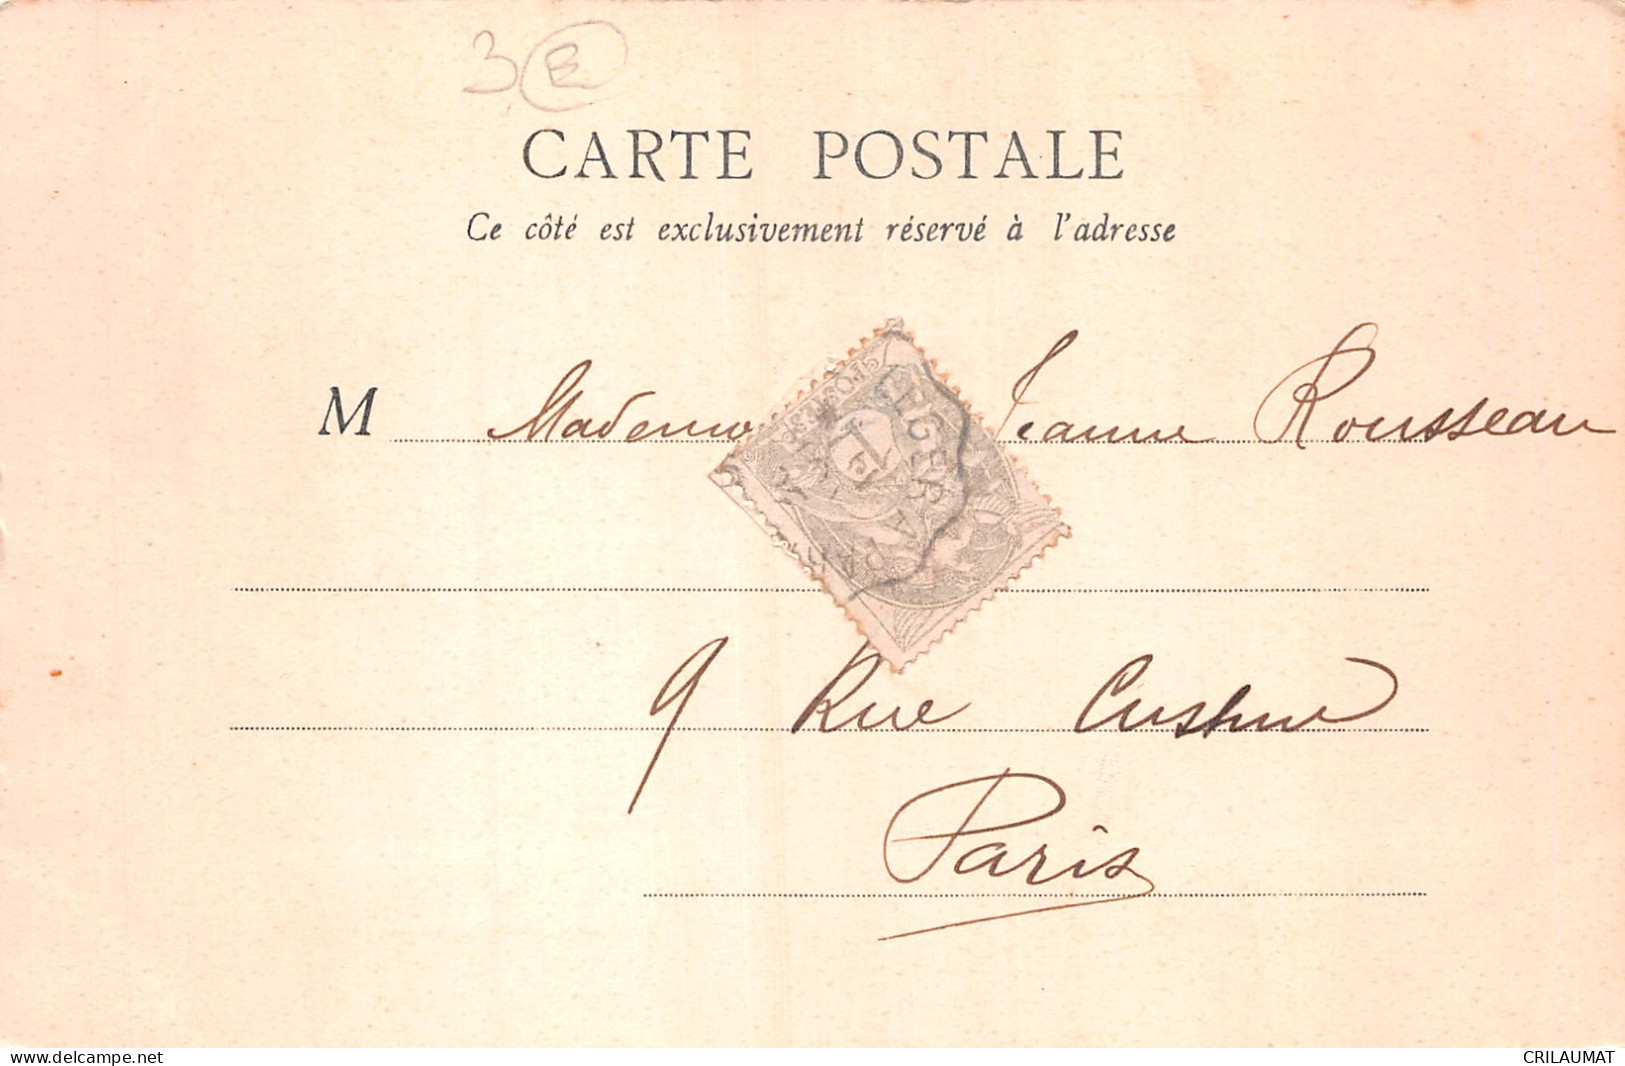 3 B
CARTE POSTALE
Ce côté est exclusivement réservé à l'adresse
M Mademo Jeanne Rousseau
9 Rue Custine
Paris
delcampe.net
CRILAUMAT